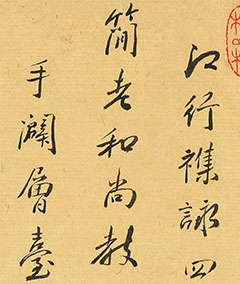 江行襍詠四
簡老和尚教
手瀾層臺